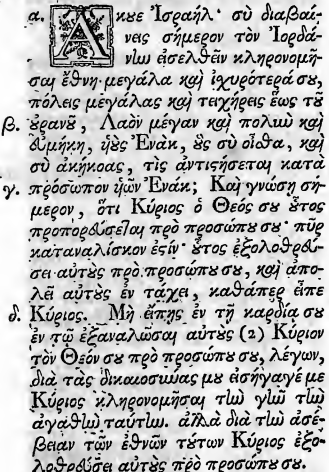 α. Ἄκουε Ἰσραήλ· σὺ διαβαί-
νεις σήμερον τὸν Ἰορδά-
νην εἰσελθεῖν κληρονομῆ-
σαι ἔθνη μεγάλα καὶ ἰσχυρότερά σου,
πόλεις μεγάλας καὶ τειχήρεις ἕως τοῦ
β. οὐρανοῦ, Λαὸν μέγαν καὶ πολὺν καὶ
εὐμήκη, υἱοὺς Ἐνάκ, οὓς σὺ οἶσθα, καὶ
σὺ ἀκήκοας, τίς ἀντιστήσεται κατὰ
γ. πρόσωπον υἱῶν Ἐνάκ; Καὶ γνώσῃ σή-
μερον, ὅτι Κύριος ὁ Θεός σου οὗτος
προπορεύσεται πρὸ προσώπου σου· πῦρ
καταναλίσκον ἐστίν· οὗτος ἐξολοθρεύ-
σει αὐτοὺς πρὸ προσώπου σου, καὶ ἀπο-
λεῖ αὐτοὺς ἐν τάχει, καθάπερ εἶπε
δ. Κύριος. Μὴ εἴπῃς ἐν τῇ καρδίᾳ σου
ἐν τῷ ἐξαναλῶσαι αὐτοὺς (2) Κύριον
τὸν Θεόν σου πρὸ προσώπου σου, λέγων,
διὰ τὰς δικαιοσύνας μου εἰσήγαγέ με
Κύριος κληρονομῆσαι τὴν γῆν τὴν
ἀγαθὴν ταύτην. ἀλλὰ διὰ τὴν ἀσέ-
βειαν τῶν ἐθνῶν τούτων Κύριος ἐξο-
λοθρεύσει αὐτοὺς πρὸ προσώπου σου.